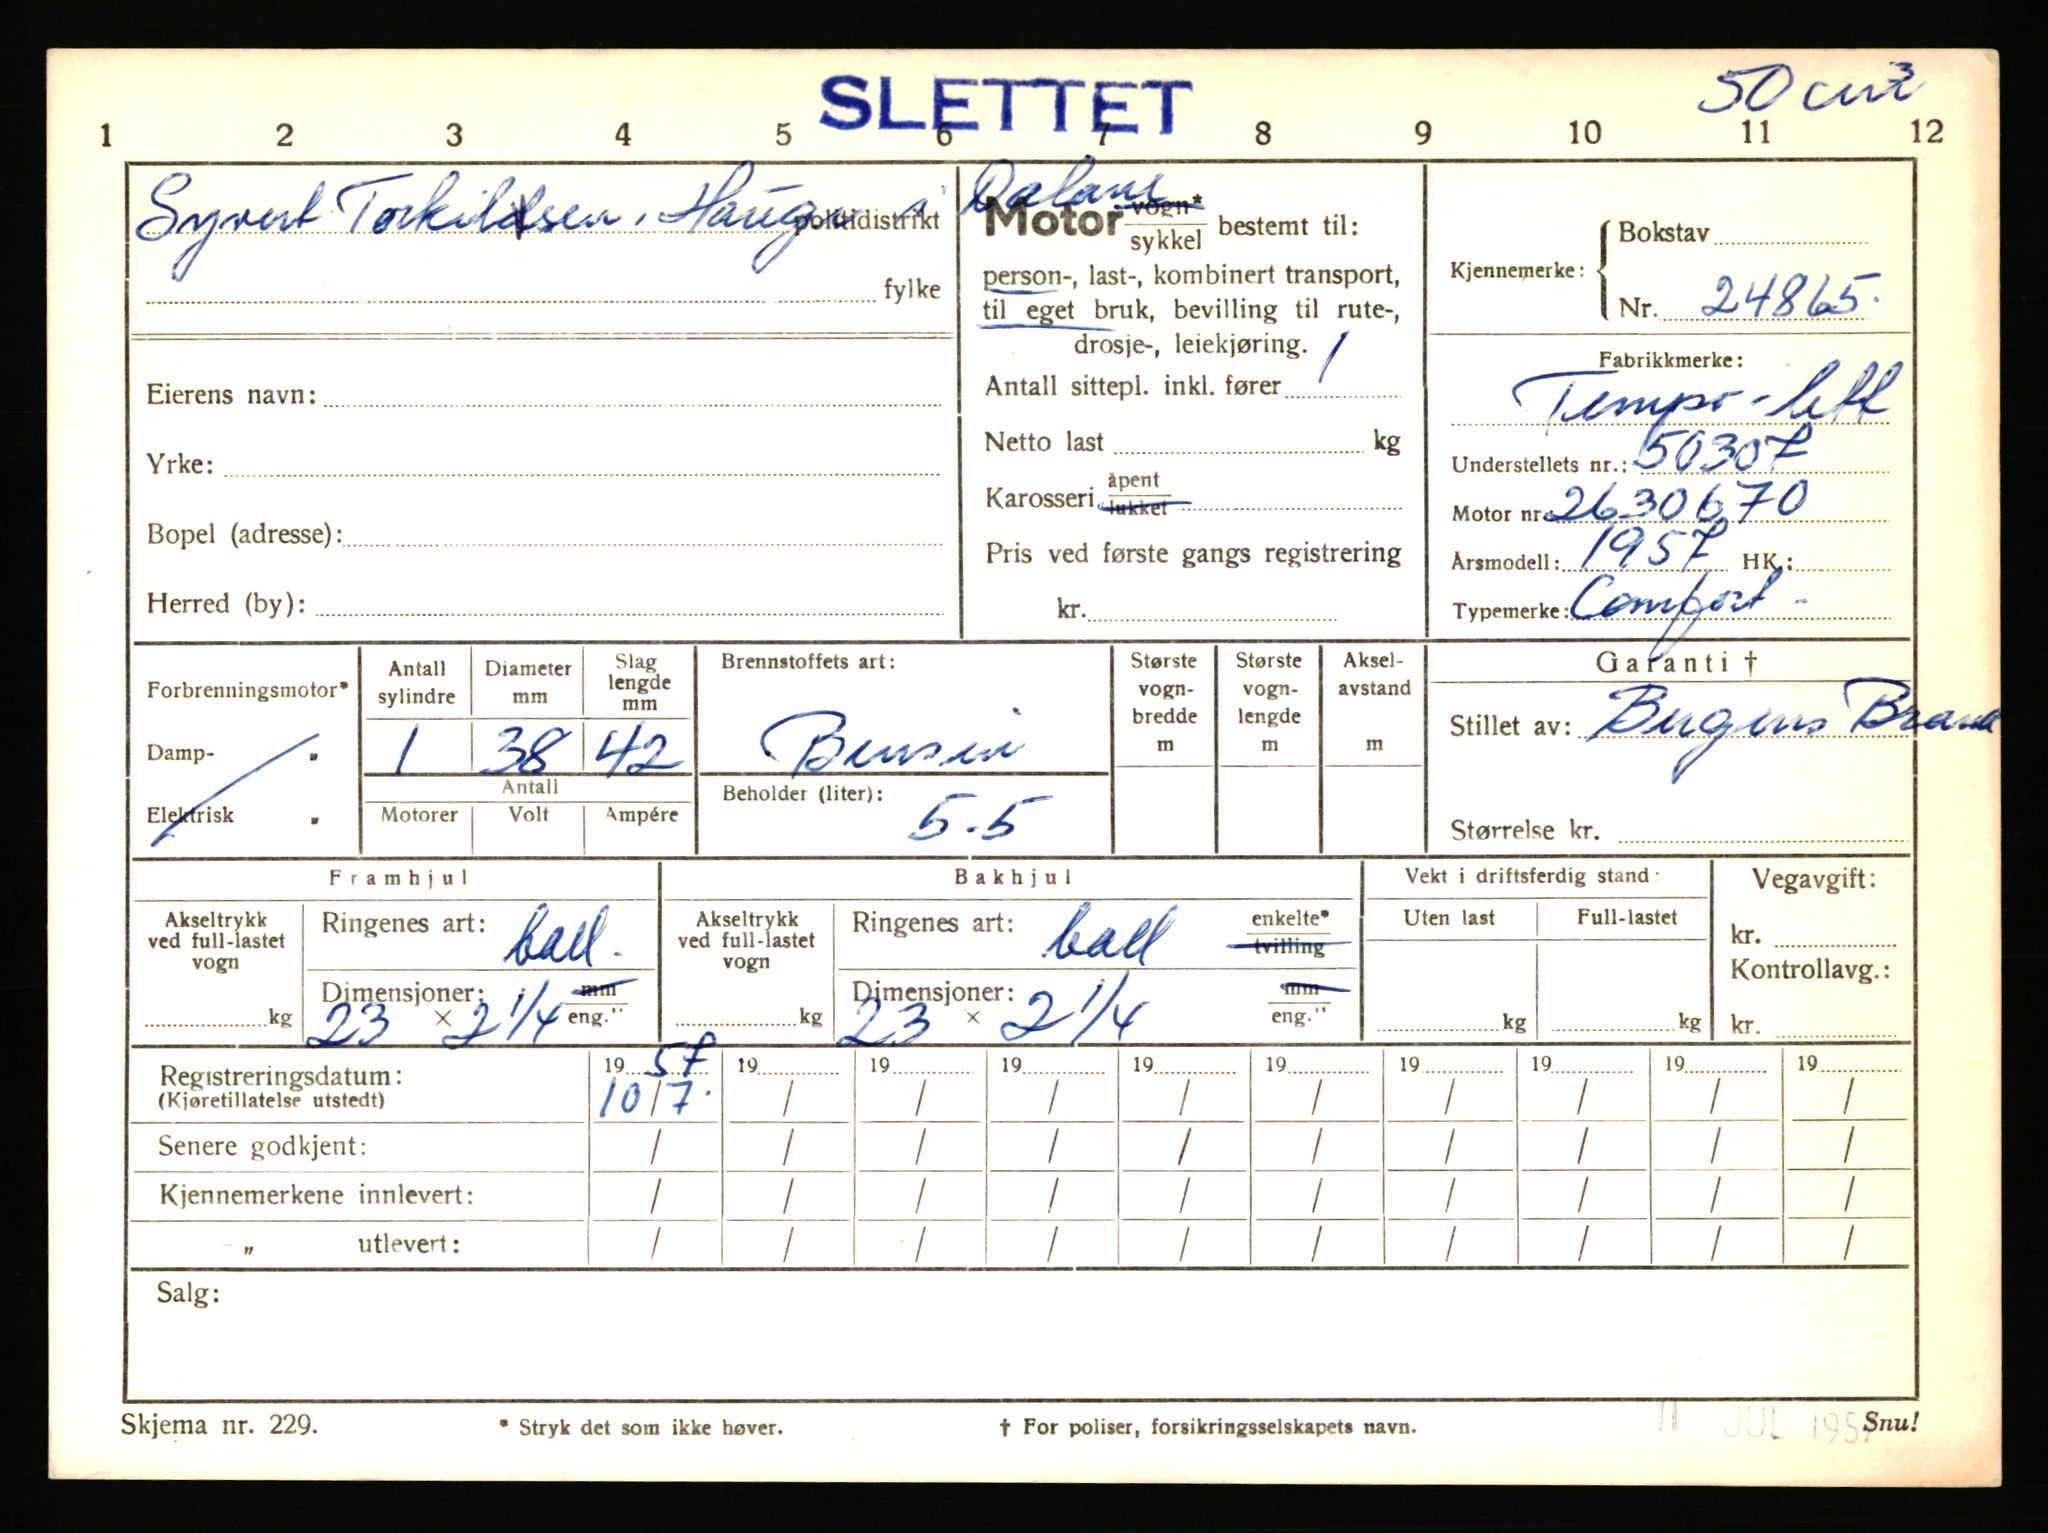 SLETTET
50 cm3
1 2 3 4 5 6 7 8 9 10 11 12
Syvert Torkildsen, Haugen i Dalane
politidistrikt
fylke
Eierens navn:
Yrke:
Bopel (adresse):
Herred (by):
Motor vogn*/sykkel bestemt til:
person-, last-, kombinert transport,
til eget bruk, bevilling til rute-,
drosje-, leiekjøring.
Antall sittepl. inkl. fører 1
Netto last kg
Karosseri åpent/lukket
Pris ved første gangs registrering
kr.
Kjennemerke: Bokstav
Nr. 24865.
Fabrikkmerke:
Tempo-lett
Understellets nr.: 50307
Motor nr: 2630670
Årsmodell: 1957 HK.:
Typemerke: Comfort -
Forbrenningsmotor*
Damp- "
Elektrisk "
Antall sylindre
Diameter mm
Slag lengde mm
1 38 42
Antall
Motorer Volt Ampére
Brennstoffets art:
Bensin
Beholder (liter):
5.5
Største vogn-bredde m
Største vogn-lengde m
Aksel-avstand m
Garanti †
Stillet av: Bergens Brand
Størrelse kr.
Framhjul
Akseltrykk ved full-lastet vogn
kg
Ringenes art: ball.
Dimensjoner: mm
23 × 2 1/4 eng."
Bakhjul
Akseltrykk ved full-lastet vogn
kg
Ringenes art: ball enkelte*/tvilling
Dimensjoner: mm
23 × 2 1/4 eng."
Vekt i driftsferdig stand:
Uten last Full-lastet
kg kg
Vegavgift:
kr.
Kontrollavg.:
kr.
Registreringsdatum: 19 57 19 19 19 19 19 19 19 19 19
(Kjøretillatelse utstedt) 10/7. / / / / / / / / /
Senere godkjent: / / / / / / / / / /
Kjennemerkene innlevert: / / / / / / / / / /
" utlevert: / / / / / / / / / /
Salg:
Skjema nr. 229.
* Stryk det som ikke høver.
† For poliser, forsikringsselskapets navn.
JUL 1957
Snu!